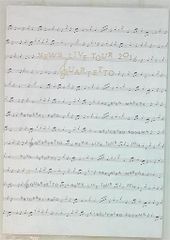 NEWS LIVE TOUR
QUARTETTO